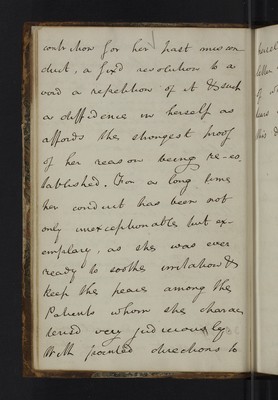 contrition for her past miscon
duct, a fix'd resolution to a
void a repetition of it & such
a diffidence in herself as
affords the strongest proof
of her reason being re-es
tablished. For a long time
her conduct has been not
only unexceptionable but ex-
emplary, as she was ever
ready to soothe irritation &
keep the peace among the
Patients whom she charac
terised very judiciously
With pointed directions to